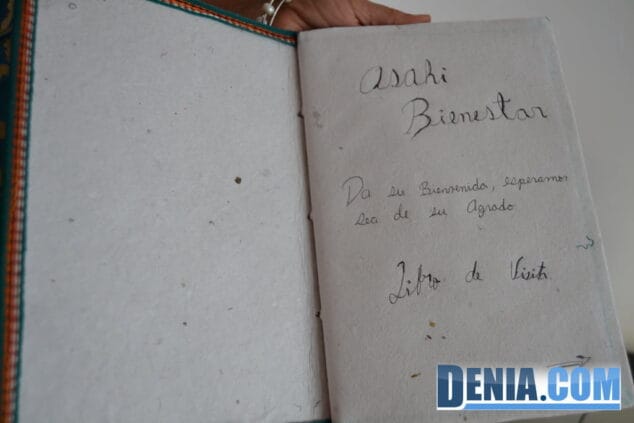 Asahi
Bienestar
Da su Bienvenida, esperamos
sea de su Agrado
Libro de Visita
DENIA.COM